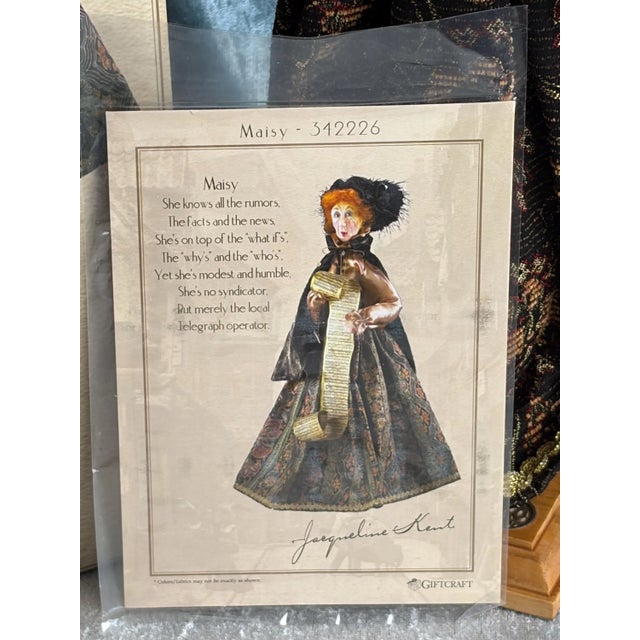 Maisy - 342226
Maisy
She knows all the rumors,
The facts and the news,
She's on top of the "what if's",
The "why's" and the "who's",
Yet she's modest and humble,
She's no syndicator,
But merely the local
Telegraph operator.
Jacqueline Kent
* Colors/fabrics may not be exactly as shown.
GIFTCRAFT